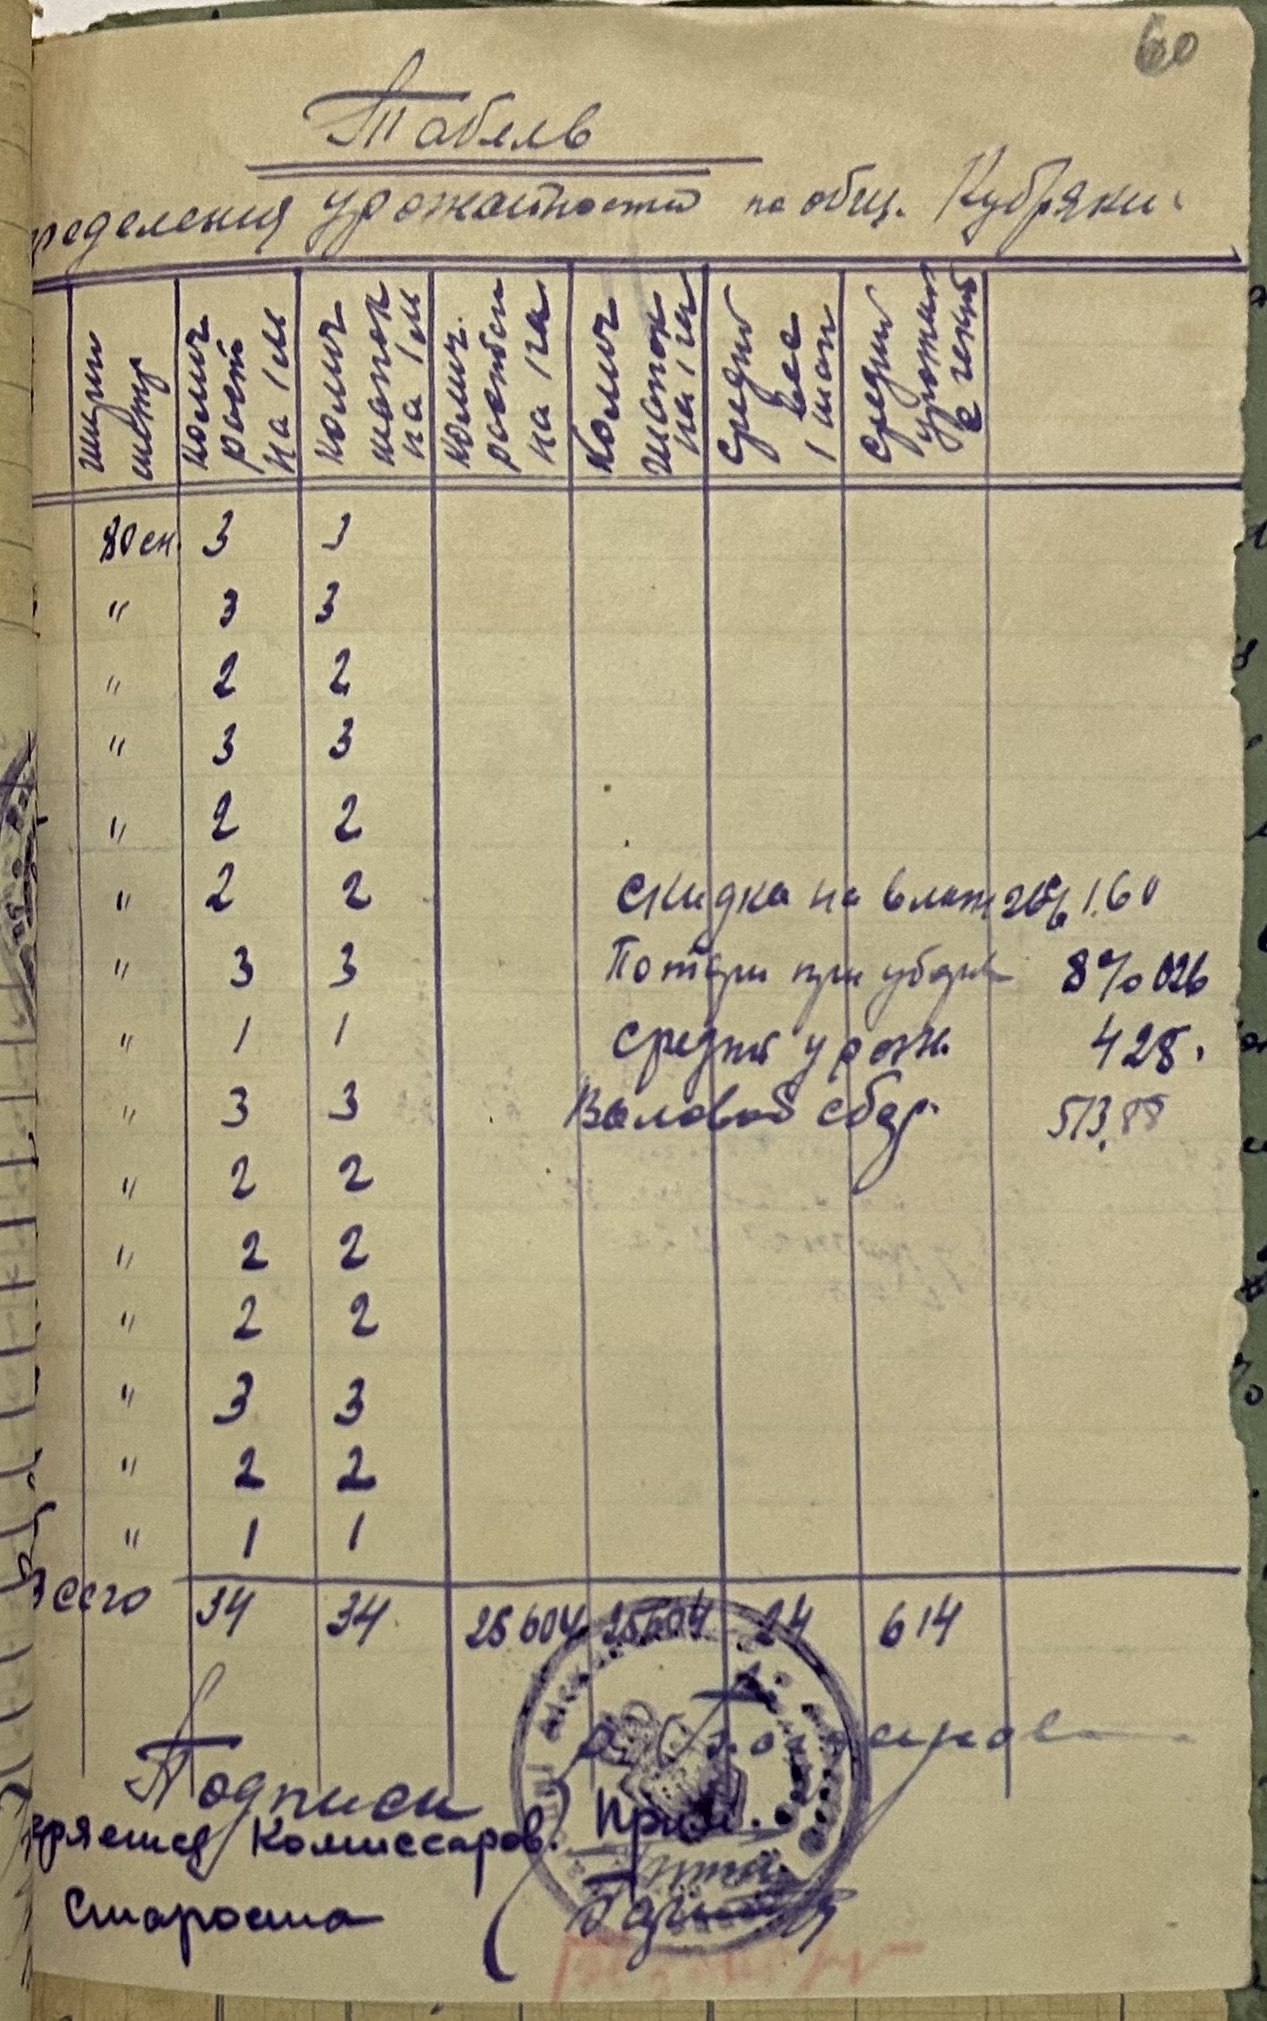 60
Табель
ределения урожайности по общ. Кубряки
Шири метр
Колич раст на 1 м
Колич шапок на 1 м
Колич. растен на 1 га
Колич шапок на 1 га
Средний вес 1 шап
Средний урожай с гект
80 см. 3 3
" 3 3
" 2 2
" 3 3
" 2 2
" 2 2 Скидка на влаж 26% 1.60
" 3 3 Потери при уборке 8% 026
" 1 1 Средний урож. 428.
" 3 3 Валовой сбор. 513,88
" 2 2
" 2 2
" 2 2
" 3 3
" 2 2
" 1 1
Всего 34 34 25604 25604 24 614
Подписи
Комиссаров.
Староста